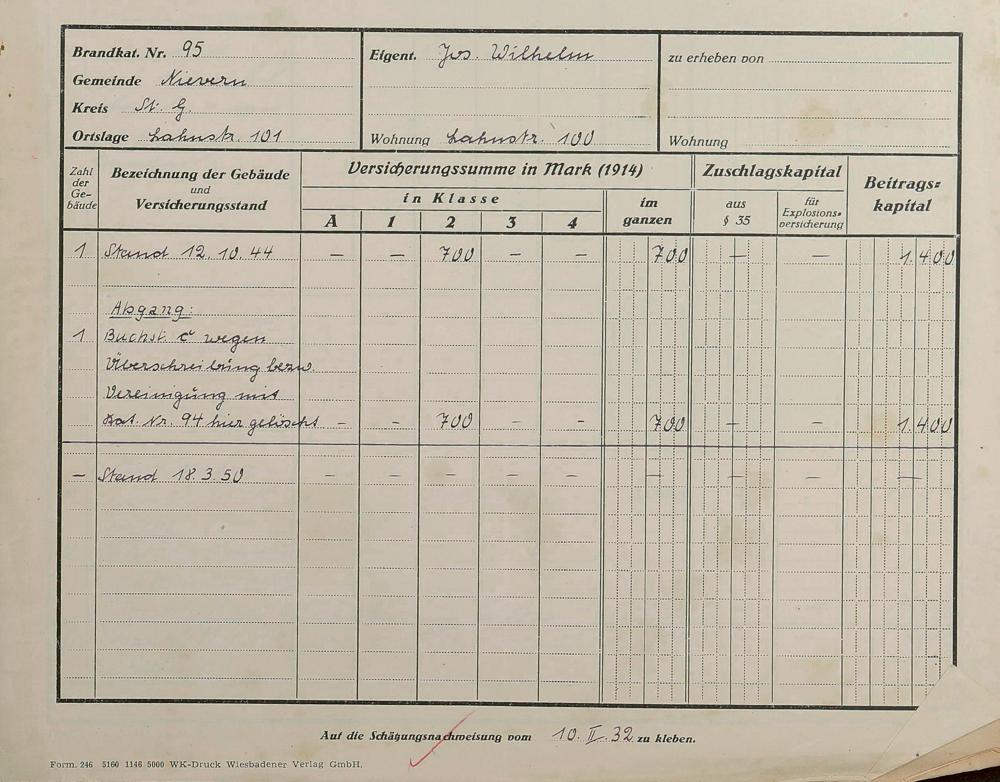 Brandkat. Nr. 95
Gemeinde Nievern
Kreis St. G.
Ortslage Lahnstr. 101
Eigent. Jos. Wilhelm
Wohnung Lahnstr. 100
zu erheben von
Wohnung
Zahl der Ge-bäude
Bezeichnung der Gebäude und Versicherungsstand
Versicherungssumme in Mark (1914)
in Klasse
A 1 2 3 4
im ganzen
Zuschlagskapital
aus § 35
für Explosions-versicherung
Beitrags-kapital
1 Stand 12.10.44 – – 700 – – 700 – – 1 400
Abgang:
1 Buchst. c wegen
Überschreibung bezw.
Vereinigung mit
Kat. Nr. 94 hier gelöscht – – 700 – – 700 – – 1 400
– Stand 18.3.50 – – – – – – – – –
Auf die Schätzungsnachweisung vom 10. II. 32 zu kleben.
Form. 246 5160 1146 5000 WK-Druck Wiesbadener Verlag GmbH.